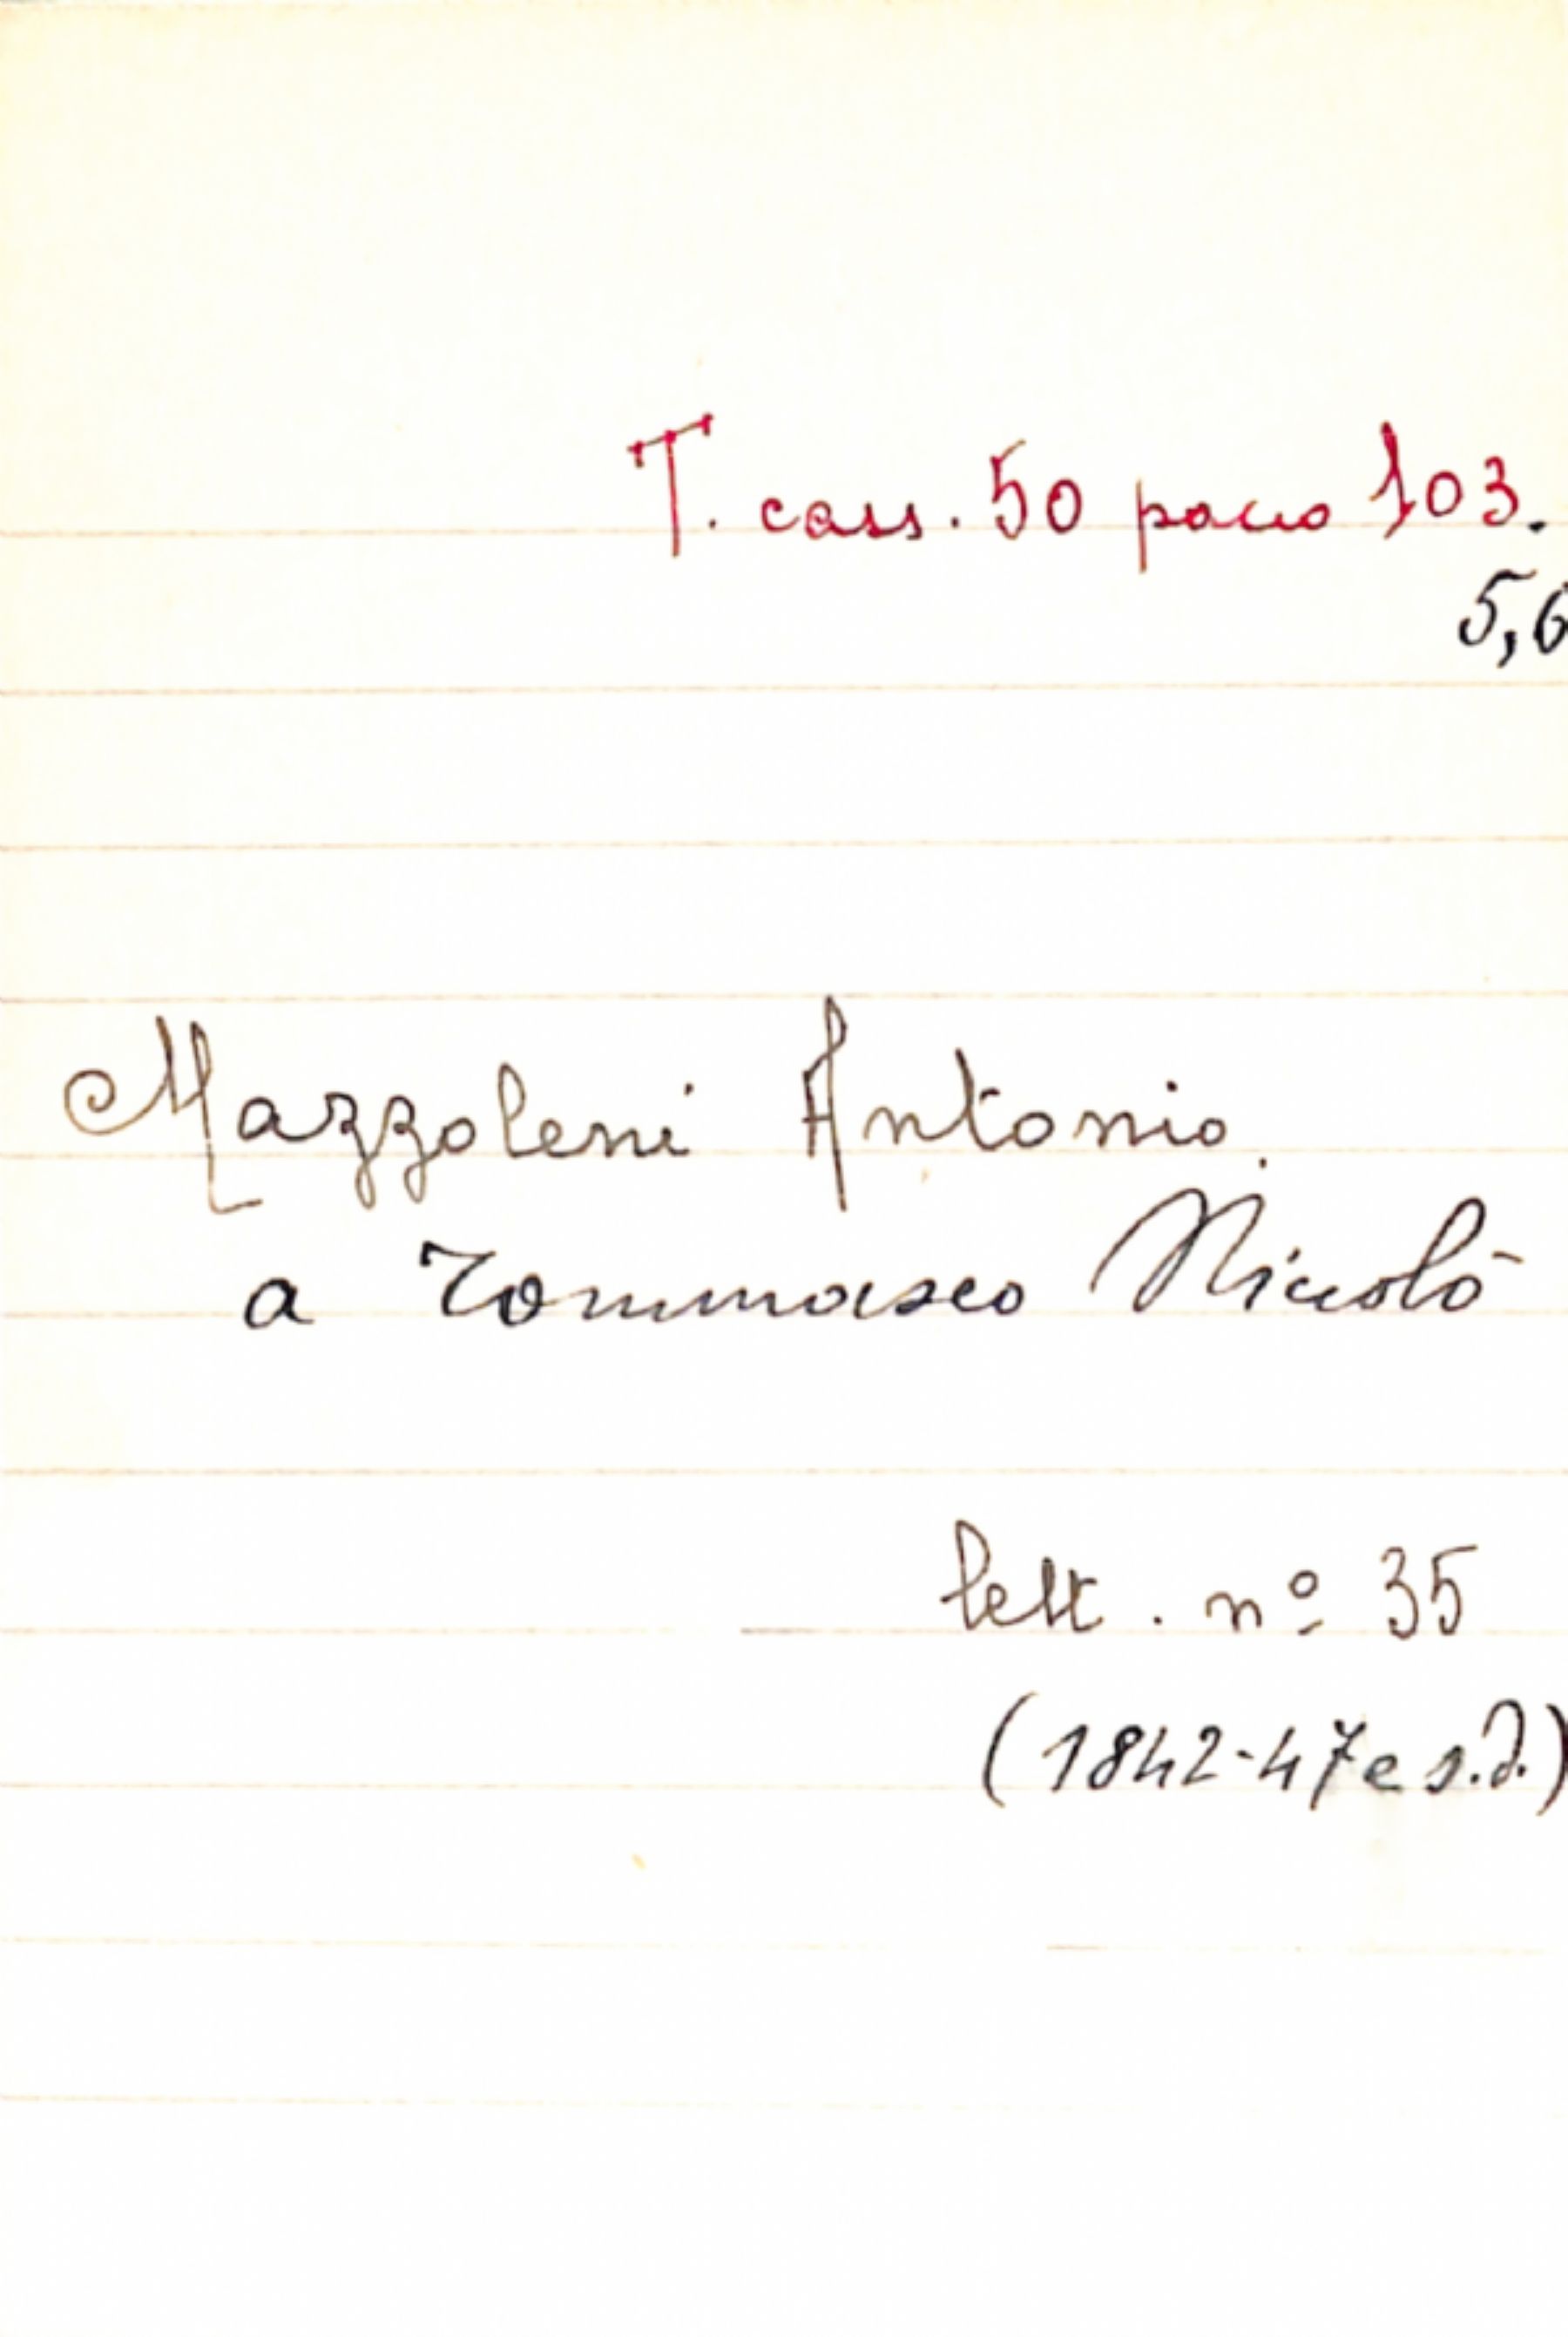 T. cass. 50 pacco 103.
5,6
Mazzoleni Antonio.
a Tommaseo Niccolò
lett. nº 35
(1842-47 e s.d.)